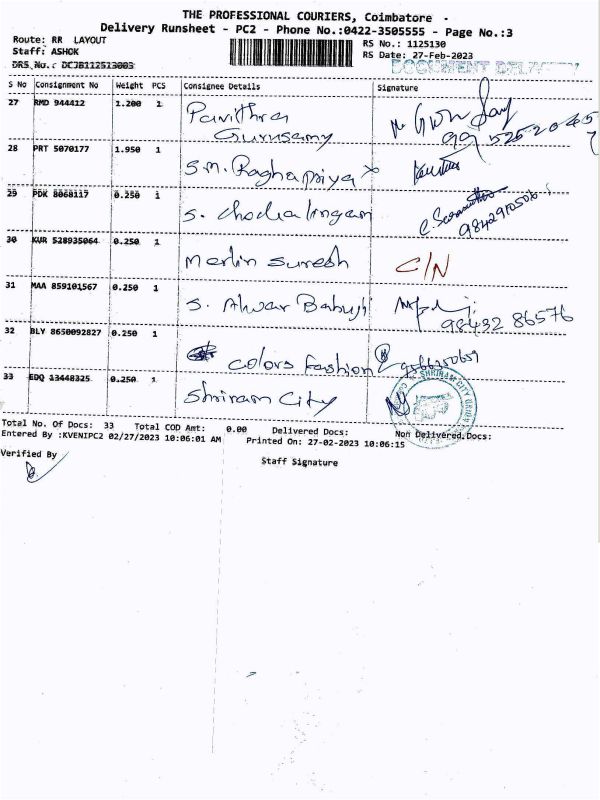 THE PROFESSIONAL COURIERS, Coimbatore -
Delivery Runsheet - PC2 - Phone No.:0422-3505555 - Page No.:3
Route: RR LAYOUT
Staff: ASHOK
DRS No.: DCJB112513003
RS No.: 1125130
RS Date: 27-Feb-2023
DOCUMENT DELIVERY
S No Consignment No Weight PCS Consignee Details Signature
27 RMD 944412 1.200 1 Pavithra
Gurusamy
28 PRT 5070177 1.950 1 S.M. Raghapriya
29 PDK 8068117 0.250 1 S. Chockalingam
9842910506
30 KUR 528935064 0.250 1 Merlin Suresh C/N
31 MAA 859101567 0.250 1 S. Alwar Babuji
98432 86576
32 BLY 8650092827 0.250 1 Colors Fashion
33 EDQ 13448325 0.250 1 Shriram City
SHRIRAM CITY UNION
Total No. Of Docs: 33 Total COD Amt: 0.00 Delivered Docs: Non Delivered Docs:
Entered By :KVENIPC2 02/27/2023 10:06:01 AM Printed On: 27-02-2023 10:06:15
Verified By
Staff Signature